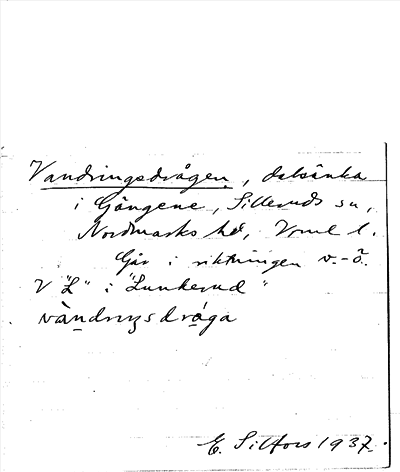 Vandringsdrågen, dalsänka
i Gängene, Silleruds sn,
Nordmarks hd, Vrml l.
Går i riktningen v.-ö.
V "L" i "Lunkerud"
vàndrıŋsdråga
E. Silfors 1937.